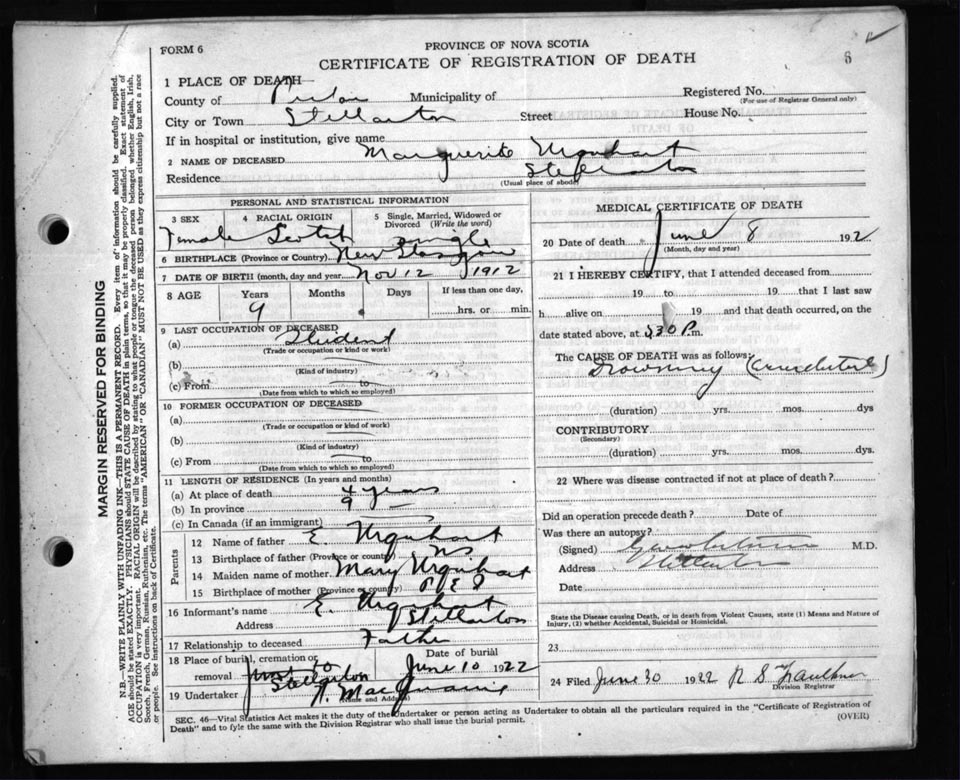 FORM 6
PROVINCE OF NOVA SCOTIA
CERTIFICATE OF REGISTRATION OF DEATH
6
1 PLACE OF DEATH
County of Pictou Municipality of
Registered No.
(For use of Registrar General only)
City or Town Stellarton Street House No.
If in hospital or institution, give name
2 NAME OF DECEASED Marguerite Urquhart
Residence Stellarton
(Usual place of abode)
PERSONAL AND STATISTICAL INFORMATION
3 SEX
4 RACIAL ORIGIN
5 Single, Married, Widowed or
Divorced (Write the word)
Female Scotch single
6 BIRTHPLACE (Province or Country) New Glasgow
7 DATE OF BIRTH (month, day and year) Nov 12 1912
8 AGE
Years
Months
Days
If less than one day,
9
hrs. or min.
9 LAST OCCUPATION OF DECEASED
(a) Student
(Trade or occupation or kind or work)
(b)
(Kind of industry)
(c) From to
(Date from which to which so employed)
10 FORMER OCCUPATION OF DECEASED
(a)
(Trade or occupation or kind of work)
(b)
(Kind of industry)
(c) From to
(Date from which to which so employed)
11 LENGTH OF RESIDENCE (In years and months)
(a) At place of death 4 years
(b) In province 9
(c) In Canada (if an immigrant)
Parents
12 Name of father E. Urquhart
13 Birthplace of father (Province or county) NS
14 Maiden name of mother Mary Urquhart
15 Birthplace of mother (Province or country) P E I
16 Informant's name E. Urquhart
Address Stellarton
17 Relationship to deceased Father
18 Place of burial, cremation or
removal Stellarton
Date of burial
June 10 1922
19 Undertaker
(Name and Address)
MEDICAL CERTIFICATE OF DEATH
20 Date of death June 8 192
(Month, day and year)
21 I HEREBY CERTIFY, that I attended deceased from
19 to 19 that I last saw
h alive on 19 and that death occurred, on the
date stated above, at 530 P.m.
The CAUSE OF DEATH was as follows:
Drowning (accidental)
(duration) yrs. mos. dys
CONTRIBUTORY
(Secondary)
(duration) yrs. mos. dys.
22 Where was disease contracted if not at place of death?
Did an operation precede death? Date of
Was there an autopsy?
(Signed) M.D.
Address Stellarton
Date
State the Disease causing Death, or in death from Violent Causes, state (1) Means and Nature of
Injury, (2) whether Accidental, Suicidal or Homicidal.
23
24 Filed June 30 1922 R S Faulkner
Division Registrar
SEC. 46—Vital Statistics Act makes it the duty of the Undertaker or person acting as Undertaker to obtain all the particulars required in the "Certificate of Registration of
Death" and to fyle the same with the Division Registrar who shall issue the burial permit.
(OVER)
MARGIN RESERVED FOR BINDING
N.B.—WRITE PLAINLY WITH UNFADING INK—THIS IS A PERMANENT RECORD. Every item of information should be carefully supplied.
AGE should be stated EXACTLY. PHYSICIANS should STATE CAUSE OF DEATH in plain terms, so that it may be properly classified. Exact statement of
OCCUPATION is very important. RACIAL ORIGIN will be described by stating to what people or tongue the deceased person belonged whether English, Irish,
Scotch, French, German, Russian, Ruthenian, etc. The terms "AMERICAN" OR "CANADIAN" MUST NOT BE USED as they express citizenship but not a race
or people. See instructions on back of Certificate.